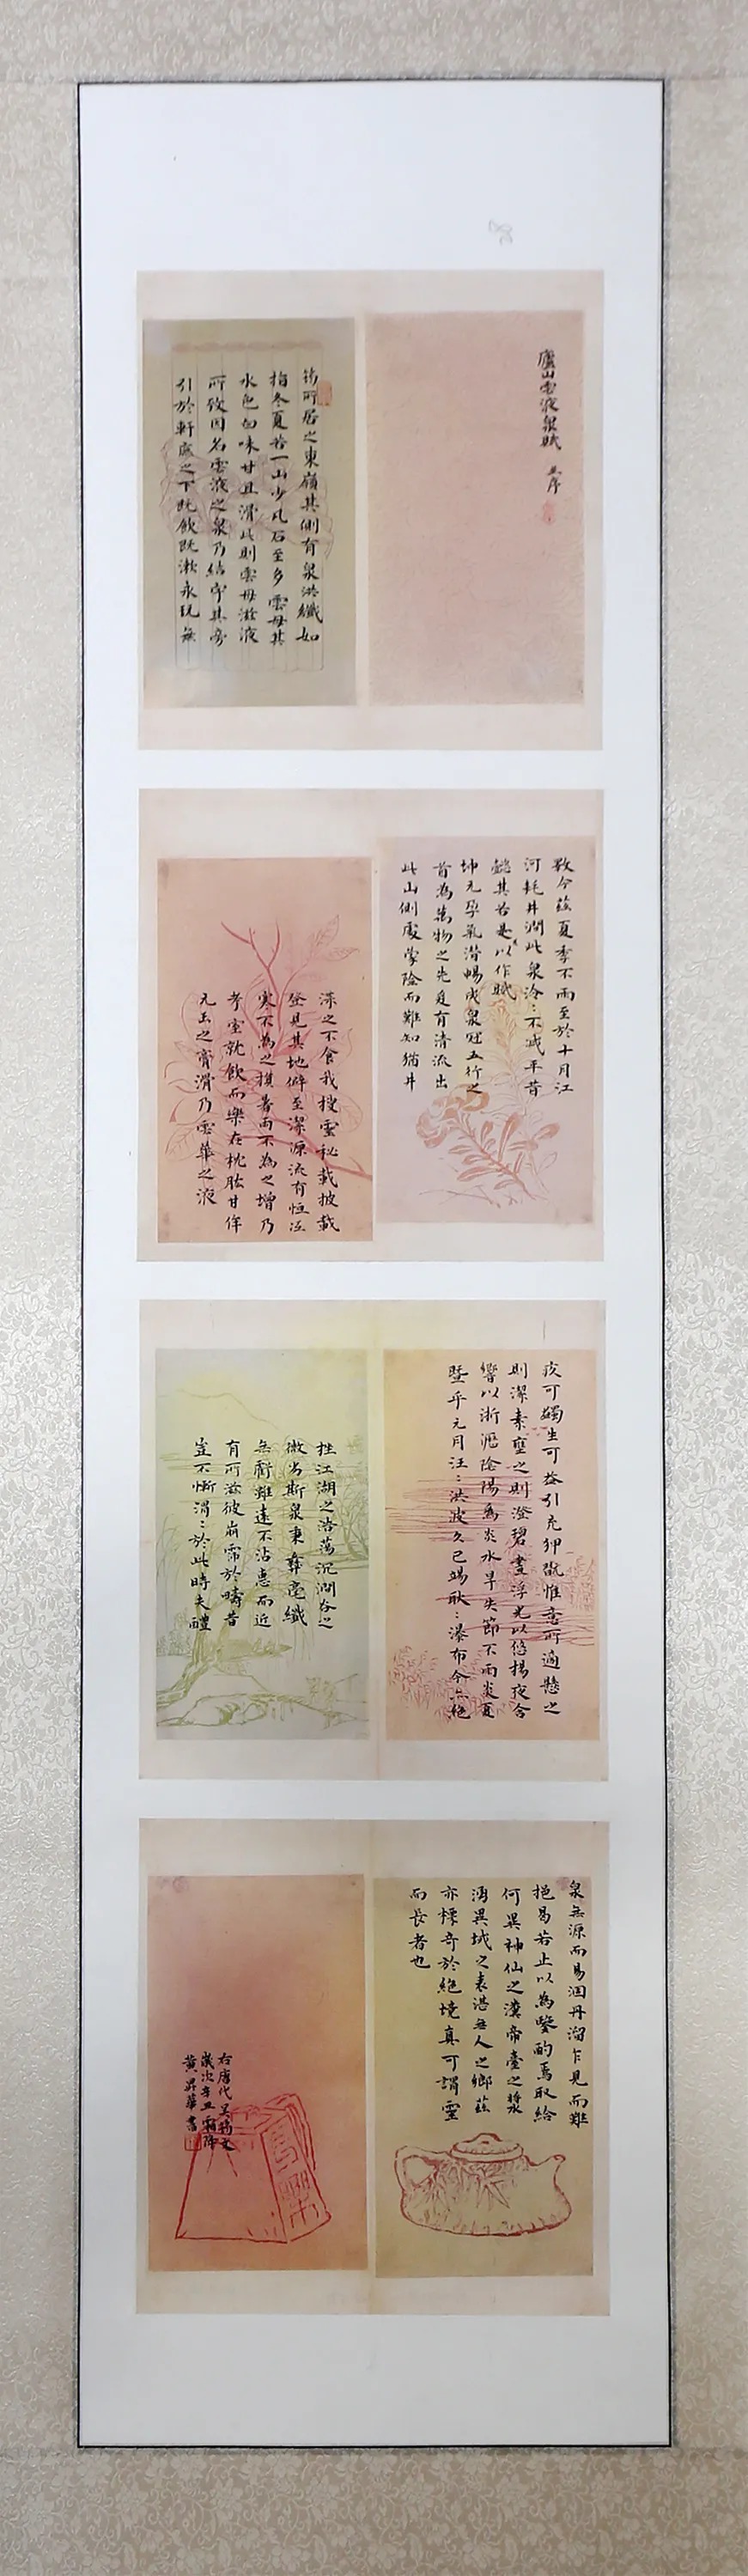 廬山雲液泉賦 並序
筠所居之東嶺其側有泉洪纖如
指冬夏若一山少凡石至多雲母其
水色白味甘且滑此則雲母滋液
所致因名雲液之泉乃結宇其旁
引於軒廡之下既飲既漱永玩無
斁今茲夏季不雨至於十月江
河耗井澗此泉泠〻不減平昔
懿其若是以作賦
坤元孕氣潛暢成泉冠五行之
首為萬物之先爰有清流出
此山側處蒙險而難知猶井
渫之不食我搜靈秘載披載
登見其地僻至潔源流有恒沍
寒不為之損暑雨不為之增乃
考室就飲而樂在枕肱甘侔
元玉之膏滑乃雲華之液
疾可蠲生可益引充狎翫惟意所適懸之
則潔素壅之則澄碧晝浮光以悠揚夜含
響以淅瀝陰陽為炎水旱失節不雨炎夏
暨乎元月汪〻洪波久已竭耿〻瀑布今亦絕
挫江湖之浩蕩沉澗谷之
微劣斯泉秉彝毫纖
無虧雖遠不沾惠而近
有所滋彼崩霈於疇昔
豈不慚涓〻於此時夫醴
泉無源而易涸丹溜乍見而難
挹曷若止以為鑒酌焉取給
何異神仙之瀵帝臺之漿
湧異域之表湛無人之鄉茲
亦標奇於絕境真可謂靈
而長者也
右唐代吳筠文
歲次辛丑霜降
黃昇華書